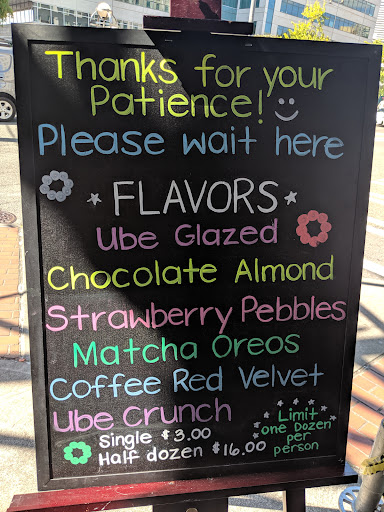 Thanks for your
Patience!
Please wait here
FLAVORS
Ube Glazed
Chocolate Almond
Strawberry Pebbles
Matcha Oreos
Coffee Red Velvet
Ube Crunch
Single $3.00
Half dozen $16.00
Limit
one Dozen
per
person